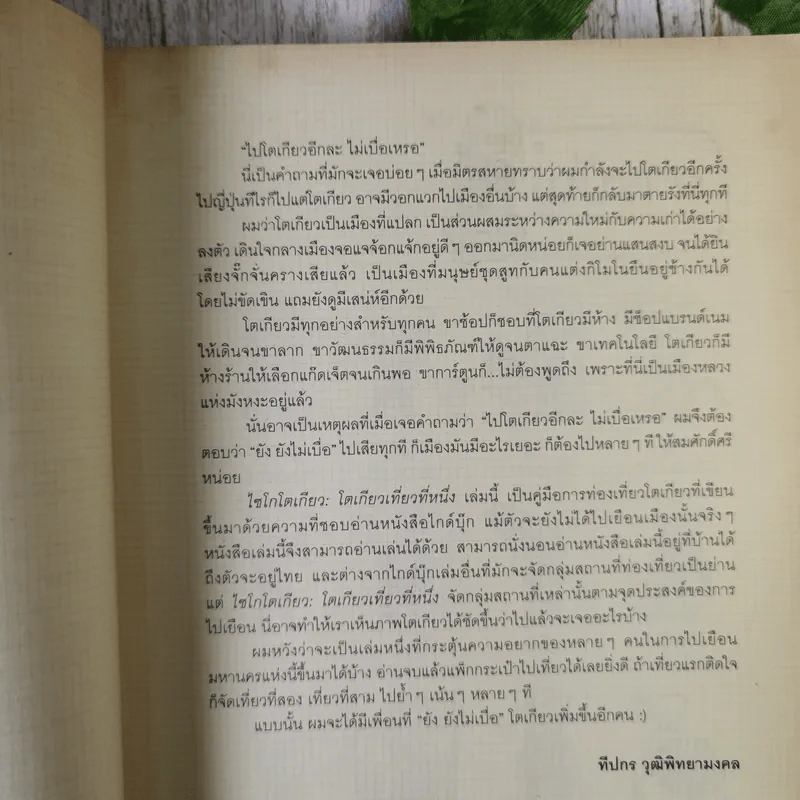 “ไปโตเกียวอีกละ ไม่เบื่อเหรอ”
นี่เป็นคำถามที่มักจะเจอบ่อยๆ เมื่อมิตรสหายทราบว่าผมกำลังจะไปโตเกียวอีกครั้ง
ไปญี่ปุ่นทีไรก็ไปแต่โตเกียว อาจมีวอกแวกไปเมืองอื่นบ้าง แต่สุดท้ายก็กลับมาตายรังที่นี่ทุกที
ผมว่าโตเกียวเป็นเมืองที่แปลก เป็นส่วนผสมระหว่างความใหม่กับความเก่าได้อย่าง
ลงตัว เดินใจกลางเมืองจอแจจ้อกแจ้กอยู่ดีๆ ออกมานิดหน่อยก็เจอย่านแสนสงบ จนได้ยิน
เสียงจั๊กจั่นครางเสียแล้ว เป็นเมืองที่มนุษย์ชุดสูทกับคนแต่งกิโมโนยืนอยู่ข้างกันได้
โดยไม่ขัดเขิน แถมยังดูมีเสน่ห์อีกด้วย
โตเกียวมีทุกอย่างสำหรับทุกคน ขาช้อปก็ชอบที่โตเกียวมีห้าง มีช็อปแบรนด์เนม
ให้เดินจนขาลาก ขาวัฒนธรรมก็มีพิพิธภัณฑ์ให้ดูจนตาแฉะ ขาเทคโนโลยี โตเกียวก็มี
ห้างร้านให้เลือกแก๊ดเจ็ตจนเกินพอ ขาการ์ตูนก็...ไม่ต้องพูดถึง เพราะที่นี่เป็นเมืองหลวง
แห่งมังหงะอยู่แล้ว
นั่นอาจเป็นเหตุผลที่เมื่อเจอคำถามว่า “ไปโตเกียวอีกละ ไม่เบื่อเหรอ” ผมจึงต้อง
ตอบว่า “ยัง ยังไม่เบื่อ” ไปเสียทุกที ก็เมืองมันมีอะไรเยอะ ก็ต้องไปหลายๆ ที ให้สมศักดิ์ศรี
หน่อย
ไซโกโตเกียว: โตเกียวเที่ยวที่หนึ่ง เล่มนี้ เป็นคู่มือการท่องเที่ยวโตเกียวที่เขียน
ขึ้นมาด้วยความที่ชอบอ่านหนังสือไกด์บุ๊ก แม้ตัวจะยังไม่ได้ไปเยือนเมืองนั้นจริงๆ
หนังสือเล่มนี้จึงสามารถอ่านเล่นได้ด้วย สามารถนั่งนอนอ่านหนังสือเล่มนี้อยู่ที่บ้านได้
ถึงตัวจะอยู่ไทย และต่างจากไกด์บุ๊กเล่มอื่นที่มักจะจัดกลุ่มสถานที่ท่องเที่ยวเป็นย่าน
แต่ ไซโกโตเกียว: โตเกียวเที่ยวที่หนึ่ง จัดกลุ่มสถานที่เหล่านั้นตามจุดประสงค์ของการ
ไปเยือน นี่อาจทำให้เราเห็นภาพโตเกียวได้ชัดขึ้นว่าไปแล้วจะเจออะไรบ้าง
ผมหวังว่าจะเป็นเล่มหนึ่งที่กระตุ้นความอยากของหลายๆ คนในการไปเยือน
มหานครแห่งนี้ขึ้นมาได้บ้าง อ่านจบแล้วแพ็กกระเป๋าไปเที่ยวได้เลยยิ่งดี ถ้าเที่ยวแรกติดใจ
ก็จัดเที่ยวที่สอง เที่ยวที่สาม ไปย้ำๆ เน้นๆ หลายๆ ที
แบบนั้น ผมจะได้มีเพื่อนที่ “ยัง ยังไม่เบื่อ” โตเกียวเพิ่มขึ้นอีกคน :)
ทีปกร วุฒิพิทยามงคล